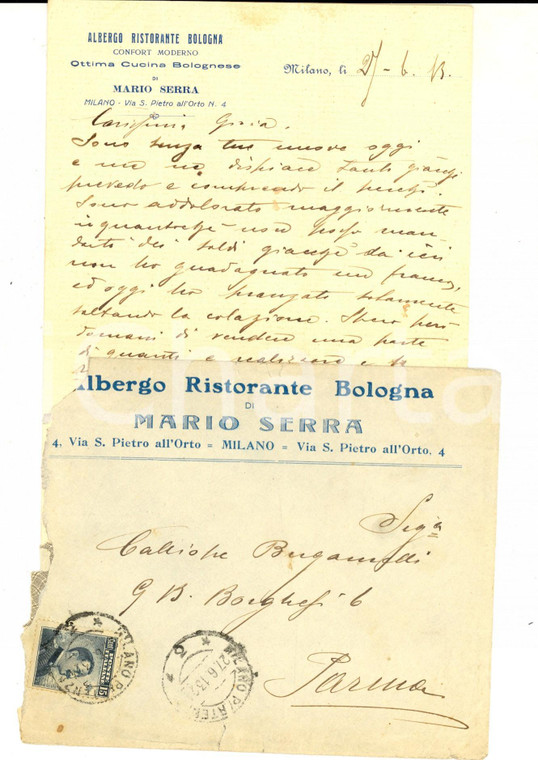 ALBERGO RISTORANTE BOLOGNA
CONFORT MODERNO
Ottima Cucina Bolognese
DI
MARIO SERRA
MILANO - Via S. Pietro all'Orto N. 4
Milano, li 27-6-13.
Carissima
Sono senza tue nuove oggi
e me ne dispiace tanto
prevedo e comprendo il
Sono addolorato maggiormente
inquantochè non posso man-
darti dei soldi giacchè da ieri
non ho guadagnato un franco,
ed oggi ho pranzato solamente
saltando la colazione. Spero però
domani di vendere una parte
di quanti e realizzare e te
Albergo Ristorante Bologna
DI
MARIO SERRA
4, Via S. Pietro all'Orto = MILANO = Via S. Pietro all'Orto, 4
Sig.a
Calliope Bergamelli
G B. Borghesi 6
Parma
MILANO PARTENZA
MILANO PARTENZA
27.6.13
2
15